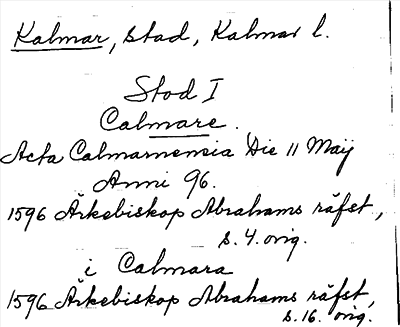 Kalmar, stad, Kalmar l.
Stod I
Calmare.
Acta Calmarnensia Die 11 Maij
Anni 96.
1596 Ärkebiskop Abrahams räfst,
s. 4. orig.
i Calmara
1596 Ärkebiskop Abrahams räfst,
s. 16. orig.